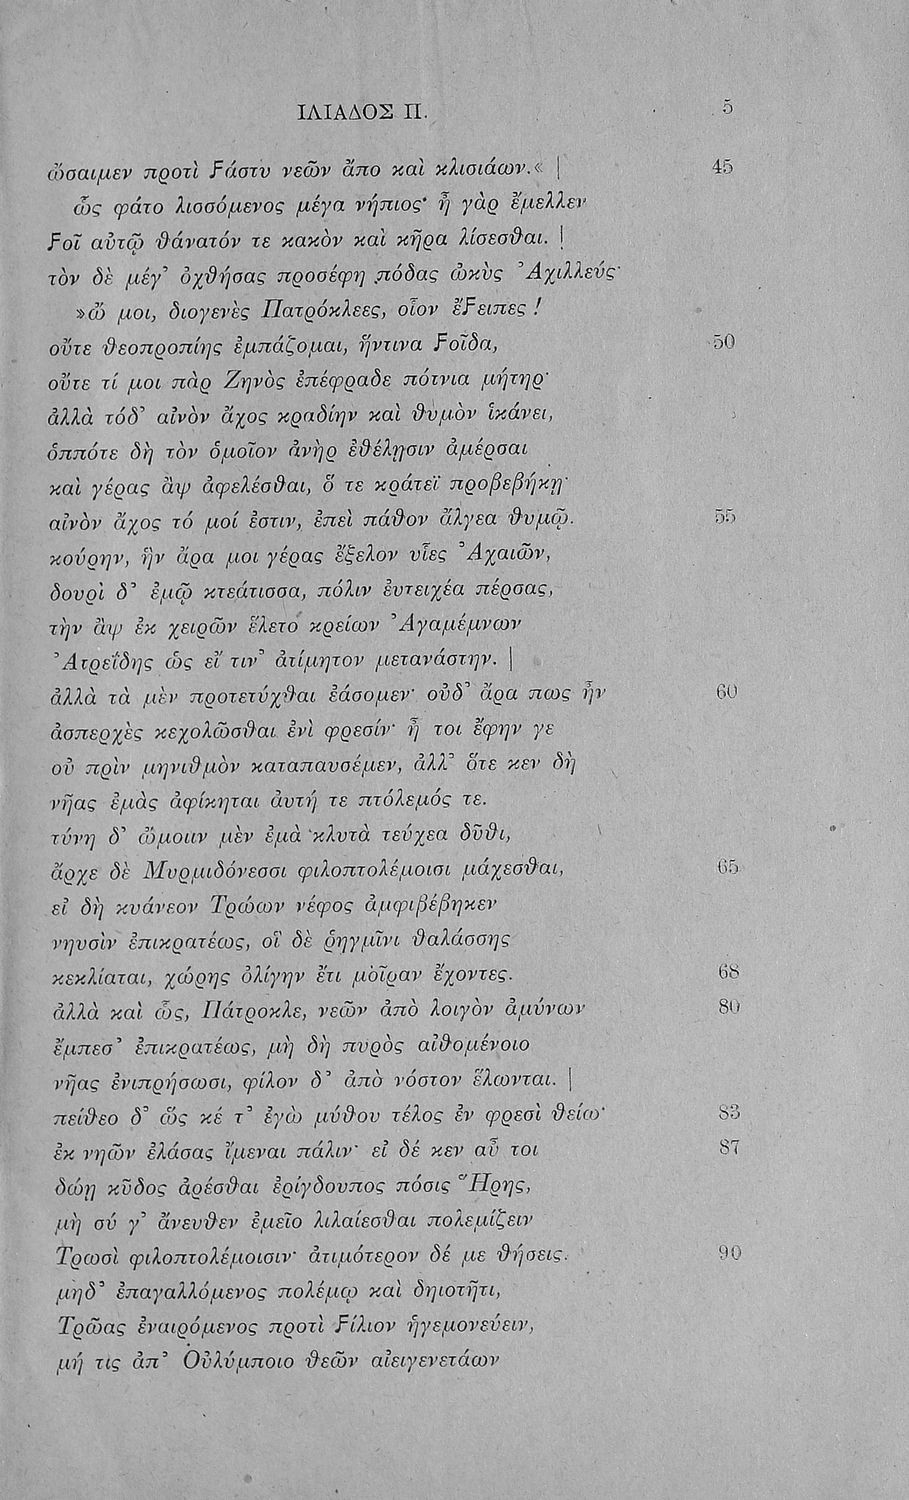 ΙΛΙΑΔΟΣ Π. 5
ὤσαιμεν προτὶ ϝάστυ νεῶν ἄπο καὶ κλισιάων.« | 45
ὣς φάτο λισσόμενος μέγα νήπιος· ἦ γὰρ ἔμελλεν
ϝοῖ αὐτῷ θάνατόν τε κακὸν καὶ κῆρα λίσεσθαι. |
τὸν δὲ μέγ’ ὀχθήσας προσέφη πόδας ὠκὺς Ἀχιλλεύς·
»ὤ μοι, διογενὲς Πατρόκλεες, οἷον ἔϝειπες !
οὔτε θεοπροπίης ἐμπάζομαι, ἥντινα ϝοῖδα, 50
οὔτε τί μοι πὰρ Ζηνὸς ἐπέφραδε πότνια μήτηρ·
ἀλλὰ τόδ’ αἰνὸν ἄχος κραδίην καὶ θυμὸν ἱκάνει,
ὁππότε δὴ τὸν ὁμοῖον ἀνὴρ ἐθέλῃσιν ἀμέρσαι
καὶ γέρας ἂψ ἀφελέσθαι, ὅ τε κράτεϊ προβεβήκῃ·
αἰνὸν ἄχος τό μοί ἐστιν, ἐπεὶ πάθον ἄλγεα θυμῷ. 55
κούρην, ἣν ἄρα μοι γέρας ἔξελον υἷες Ἀχαιῶν,
δουρὶ δ’ ἐμῷ κτεάτισσα, πόλιν ἐυτειχέα πέρσας,
τὴν ἂψ ἐκ χειρῶν ἕλετο κρείων Ἀγαμέμνων
Ἀτρεΐδης ὡς εἴ τιν’ ἀτίμητον μετανάστην. |
ἀλλὰ τὰ μὲν προτετύχθαι ἐάσομεν· οὐδ’ ἄρα πως ἦν 60
ἀσπερχὲς κεχολῶσθαι ἐνὶ φρεσίν· ἦ τοι ἔφην γε
οὐ πρὶν μηνιθμὸν καταπαυσέμεν, ἀλλ’ ὅτε κεν δὴ
νῆας ἐμὰς ἀφίκηται ἀυτή τε πτόλεμός τε.
τύνη δ’ ὤμοιιν μὲν ἐμὰ κλυτὰ τεύχεα δῦθι,
ἄρχε δὲ Μυρμιδόνεσσι φιλοπτολέμοισι μάχεσθαι, 65
εἰ δὴ κυάνεον Τρώων νέφος ἀμφιβέβηκεν
νηυσὶν ἐπικρατέως, οἳ δὲ ῥηγμῖνι θαλάσσης
κεκλίαται, χώρης ὀλίγην ἔτι μοῖραν ἔχοντες. 68
ἀλλὰ καὶ ὧς, Πάτροκλε, νεῶν ἀπὸ λοιγὸν ἀμύνων 80
ἔμπεσ’ ἐπικρατέως, μὴ δὴ πυρὸς αἰθομένοιο
νῆας ἐνιπρήσωσι, φίλον δ’ ἀπὸ νόστον ἕλωνται. |
πείθεο δ’ ὥς κέ τ’ ἐγὼ μύθου τέλος ἐν φρεσὶ θείω· 83
ἐκ νηῶν ἐλάσας ἴμεναι πάλιν· εἰ δέ κεν αὖ τοι 87
δώῃ κῦδος ἀρέσθαι ἐρίγδουπος πόσις Ἥρης,
μὴ σύ γ’ ἄνευθεν ἐμεῖο λιλαίεσθαι πολεμίζειν
Τρωσὶ φιλοπτολέμοισιν· ἀτιμότερον δέ με θήσεις. 90
μηδ’ ἐπαγαλλόμενος πολέμῳ καὶ δηιοτῆτι,
Τρῶας ἐναιρόμενος προτὶ ϝίλιον ἡγεμονεύειν,
μή τις ἀπ’ Οὐλύμποιο θεῶν αἰειγενετάων